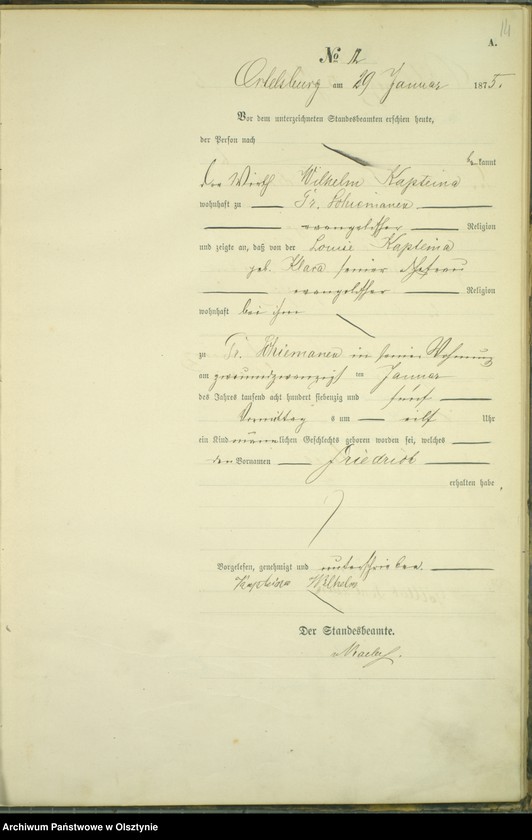 14
A.
No 12
Ortelsburg am 29 Januar 1875.
Vor dem unterzeichneten Standesbeamten erschien heute,
der Person nach
be kannt
der Wirth Wilhelm Kapteina
wohnhaft zu Gr. Schiemanen
evangelischer Religion
und zeigte an, daß von der Louise Kapteina
geb. Klara seiner Ehefrau
evangelischer Religion
wohnhaft bei ihm
zu Gr. Schiemanen in seiner Wohnung
am zweiundzwanzigst en Januar
des Jahres tausend acht hundert siebenzig und fünf
Vormittag s um eilf Uhr
ein Kind männlichen Geschlechts geboren worden sei, welches
den Vornamen Friedrich
erhalten habe,
Vorgelesen, genehmigt und unterschrieben.
Kapteina Wilhelm
Der Standesbeamte.
Archiwum Państwowe w Olsztynie